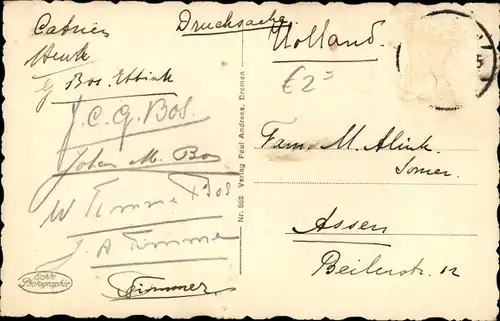 Catrien
Henk
G Bos. Ebbink
J. C. G. BOS.
Johan M. Bos
X Bos
W Timmer
J. A Timmer
Timmer
Echte
Photographie
Drucksache
Nr. 958 Verlag Paul Andreas, Bremen
Holland.
€ 2
Fam. M. Alink.
Assen
Beilerstr. 12